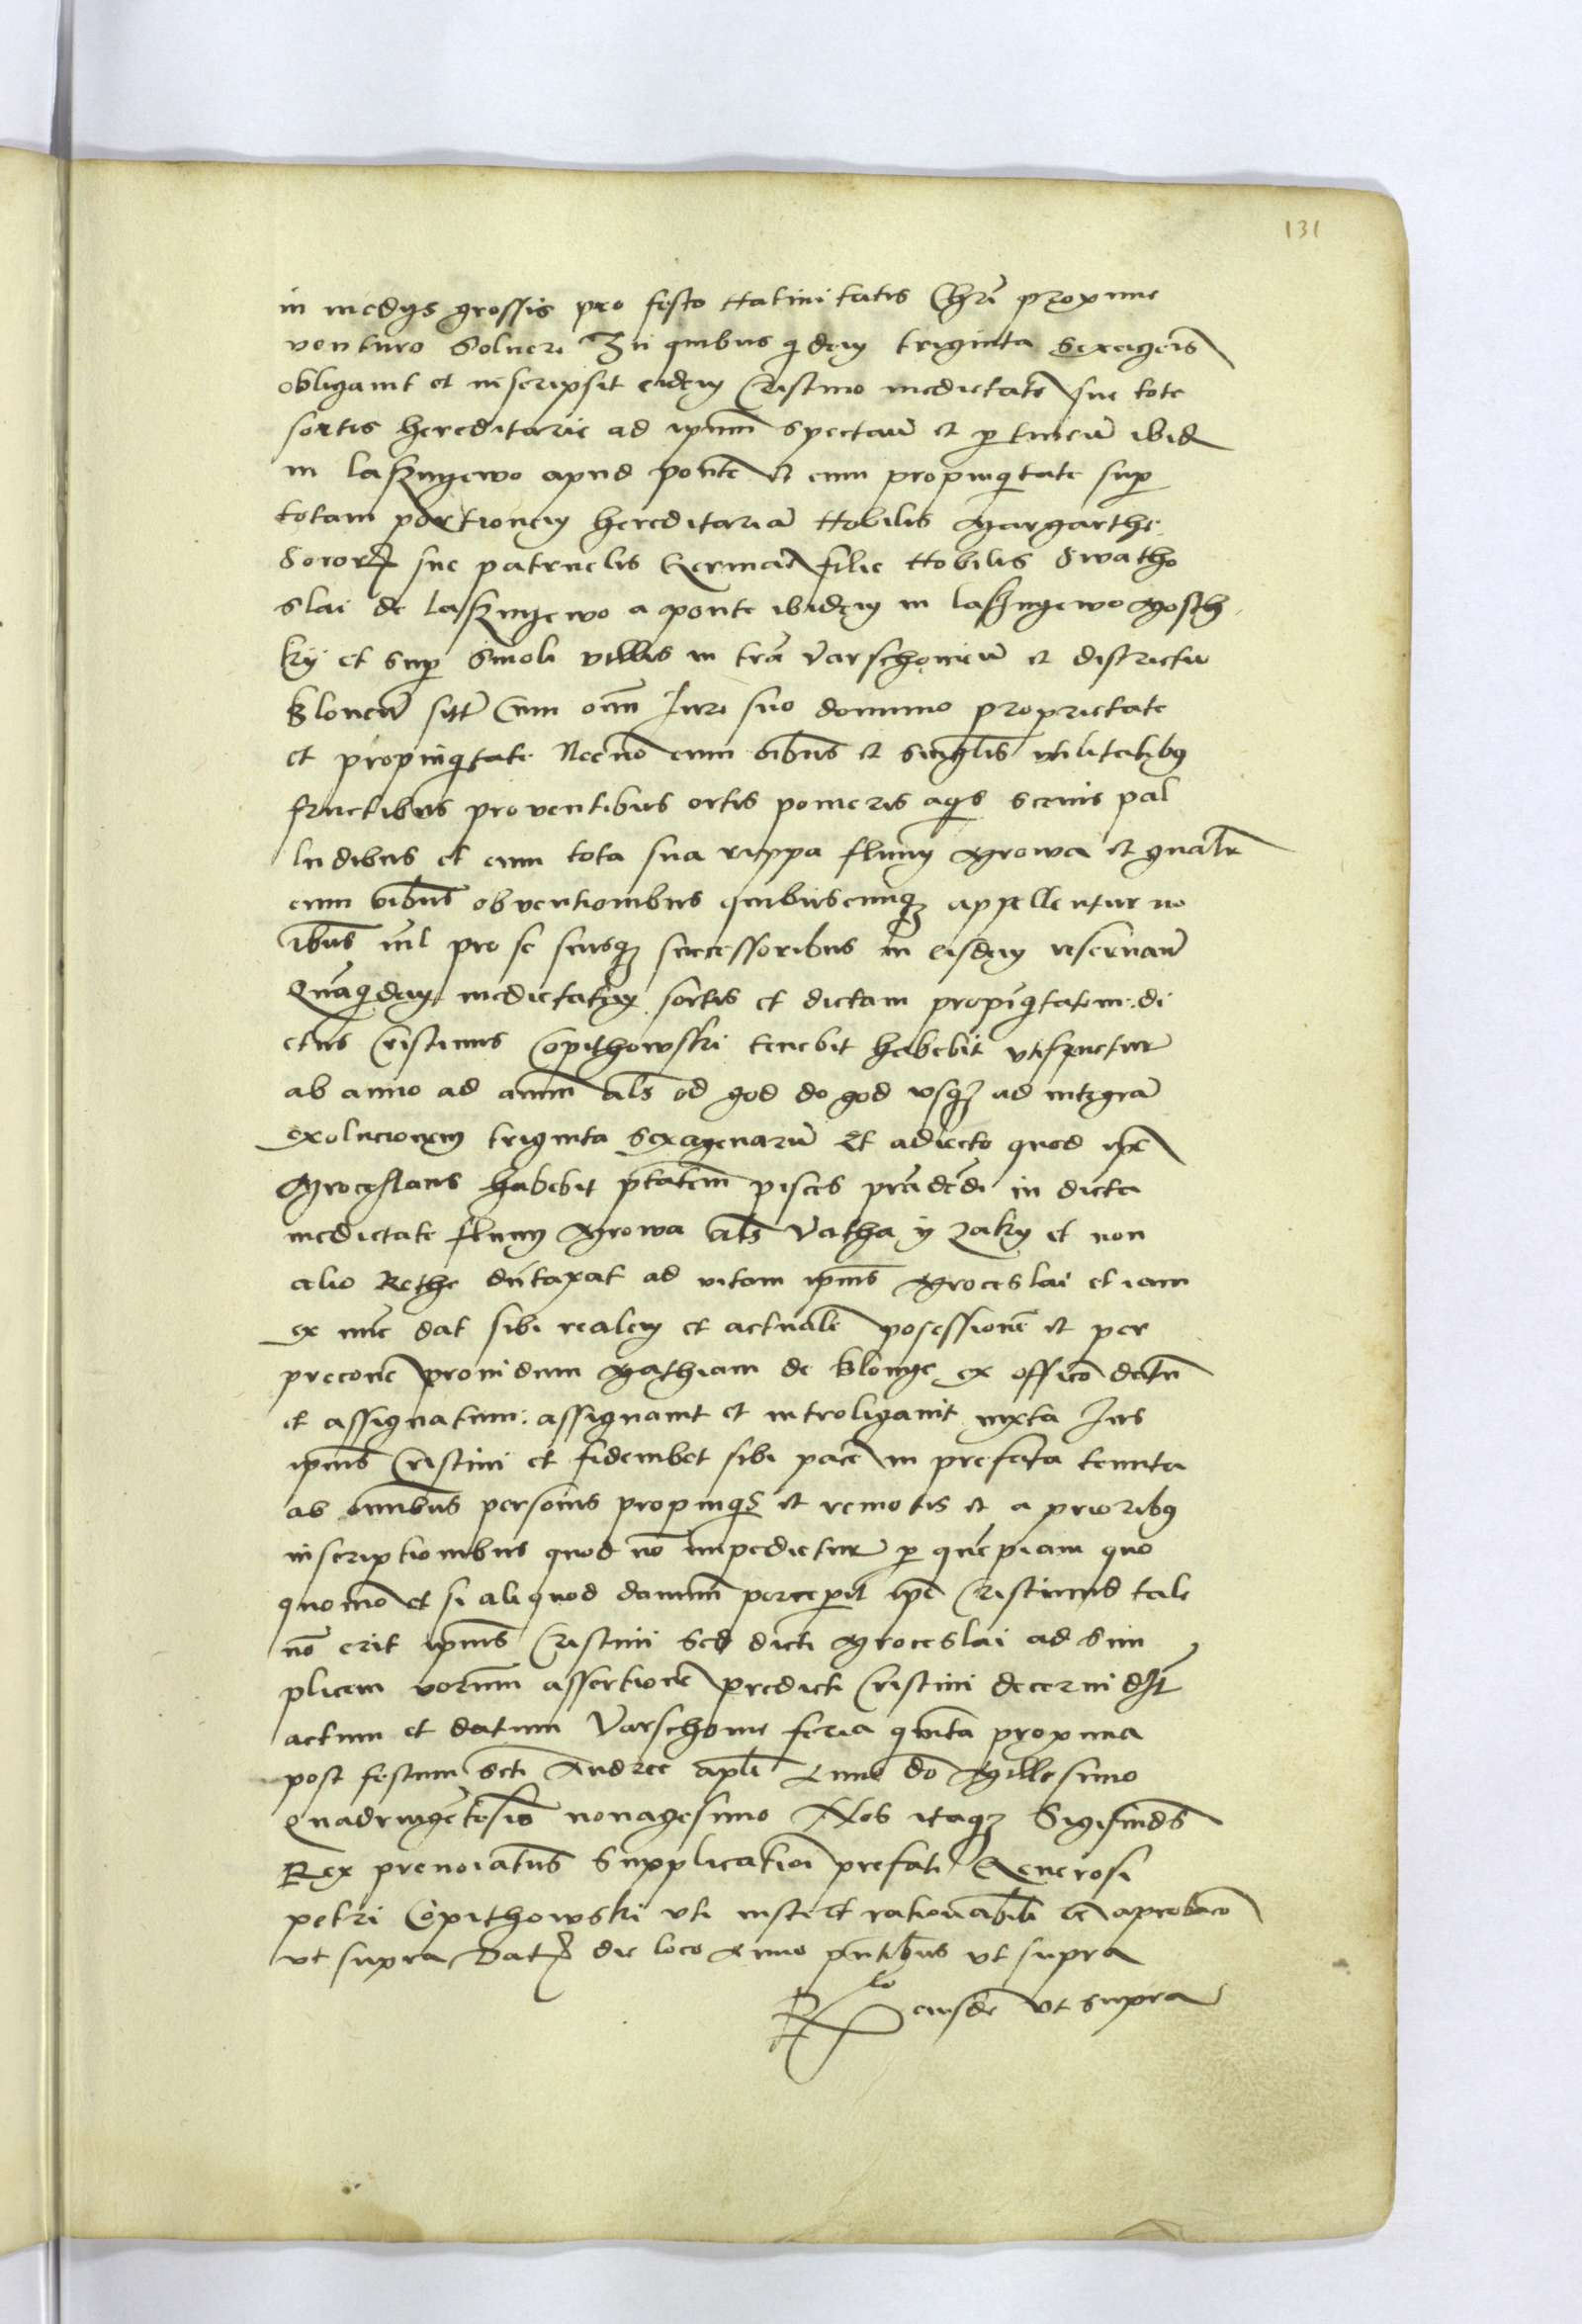 131
in medys grossis pro festo Natiuitatis Chri proxime
venturo Soluere In quibus qdem triginta Sexagenis
obligauit et inscripsit eidem Cristino medietate sue tote
sortis hereditarie ad ipsum spectan et ptinen ibid
in laszugewo apud ponte et cum propinqitate sup
totam portionem hereditaria Nobilis Margarthe
Sororis sue patruelis German filie Nobilis Swatho
slai de laszugewo a ponte ibidem in laszugewo Mosch
ky et sup Smoli villis in tra Varschouien et districtu
Blonen sitt Cum omi Iure suo dominio proprietate
et propinqitate Necno cum oibus et singlis vtilitatibus
fructibus prouentibus ortis pomeris aqis scenis pal
ludibus et cum tota sua rippa fluuy Mrowa et gnalr
cum oibus obuentionibus quibuscunq appellentur no
ibus nil pro se suisq successoribus in eisdem reseruan
Quaqdem medietatem sortis et dictam propiqtatem di
ctus Cristinus Copithowski tenebit habebit vtifruetur
ab anno ad annu als od god do god vsq ad integra
exolucionem triginta Sexagenaru Et adiecto quod ipse
Mroceslaus habebit ptatem pisces pradedi in dicta
medietate fluuy Mrowa als Vatha y zaky et non
alio Rethe dutaxat ad vitam ipius Mroceslai et iam
ex nuc dat sibi realem et actuale posessione et per
precone prouidum Mathiam de Blonye ex officio datu
et assignatum assignauit et introligauit iuxta Ius
ipius Cristini et fideiubet sibi pace in prefata tenuta
ab omibus personis propinqis et remotis et a prioribus
inscriptionibus quod no impedietur p quepiam quo
quomo et si aliquod damnu perceperit ipe Cristinus tale
no erit ipius Cristini Sed dicti Mroceslai ad sim
plicem verbum assertione predicti Cristini decerni
actum et datum Varschouie feria quinta proxima
post festum Scti Andree apli Anno do Millesimo
Quadringetesio nonagesimo Nos itaq Sigismds
Rex prenoiatus Supplicatioi prefati Generosi
petri Copithowski vti iuste et rationabili aprobaco
ut supra Dat die loco Anno pntibus ut supra
Rlo eiusde vt supra